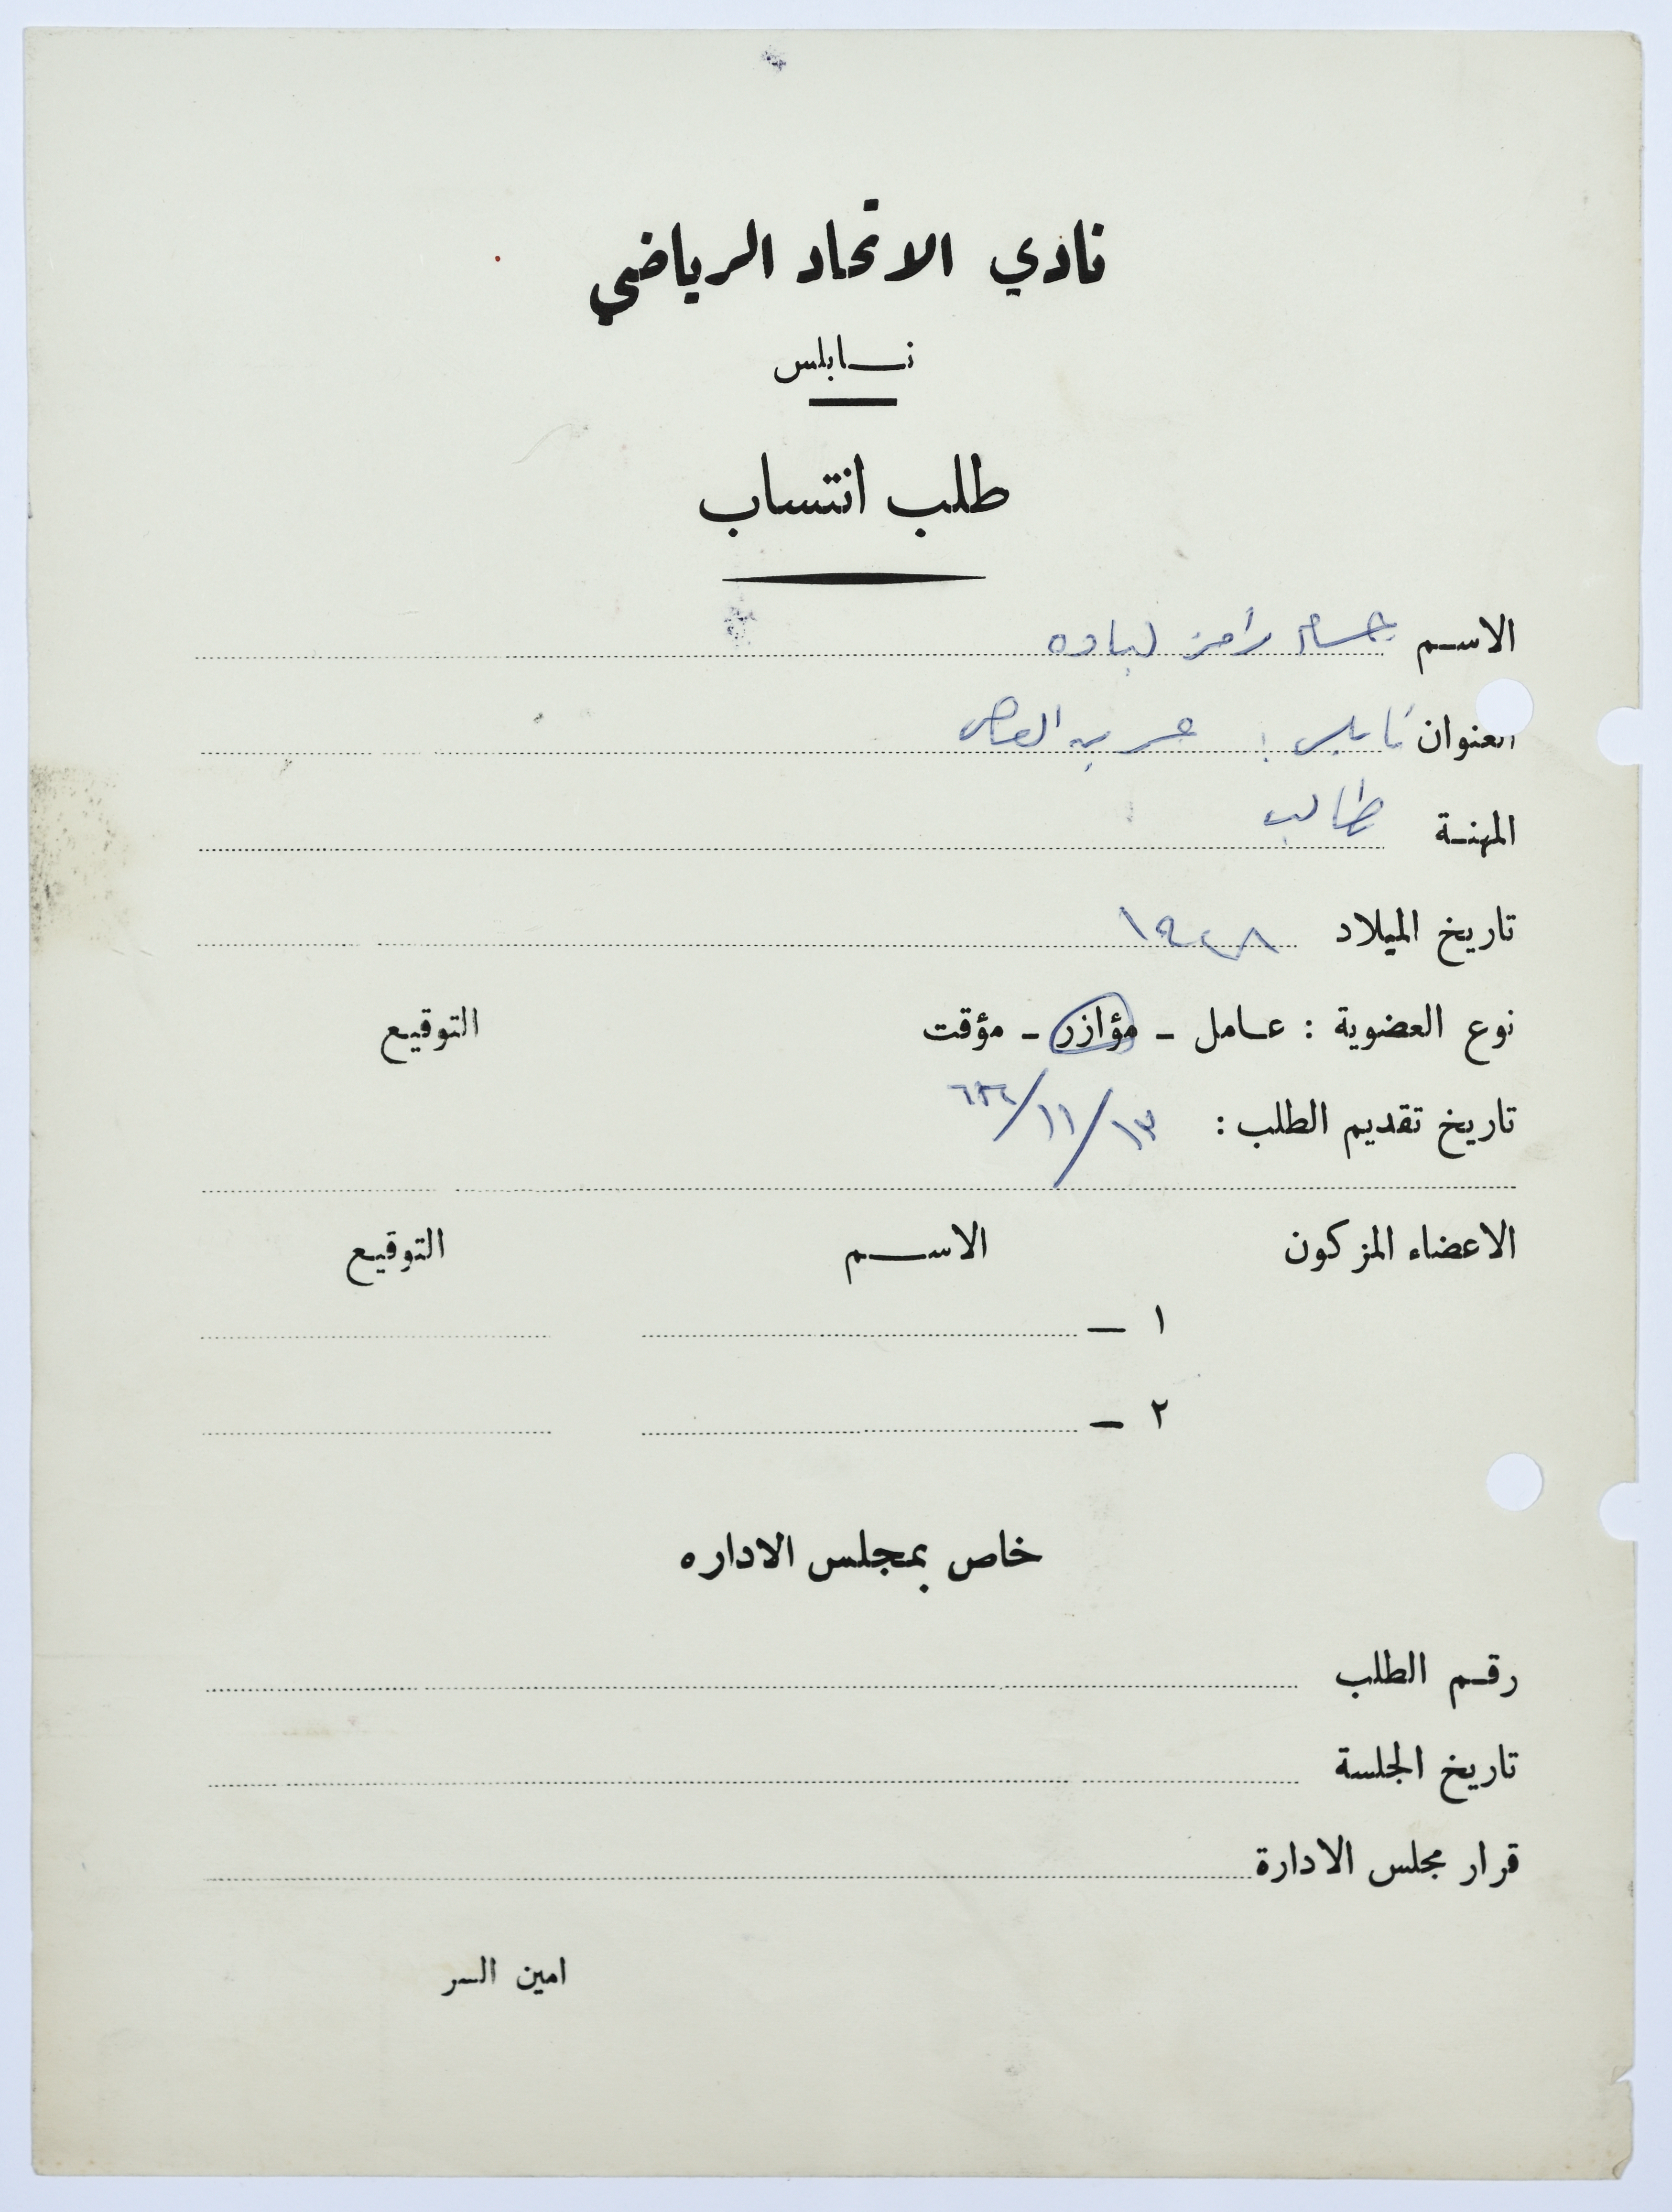 نادي الاتحاد الرياضي
نابلس
طلب انتساب
الاسم حسام رامز لباده
العنوان نابلس :
المهنة طالب
تاريخ الميلاد
نوع العضوية : عامل - مؤازر - مؤقت التوقيع
تاريخ تقديم الطلب : ١٣/١١/
الاعضاء المزكون الاسم التوقيع
١ -
٢ -
خاص بمجلس الاداره
رقم الطلب
تاريخ الجلسة
قرار مجلس الادارة
امين السر